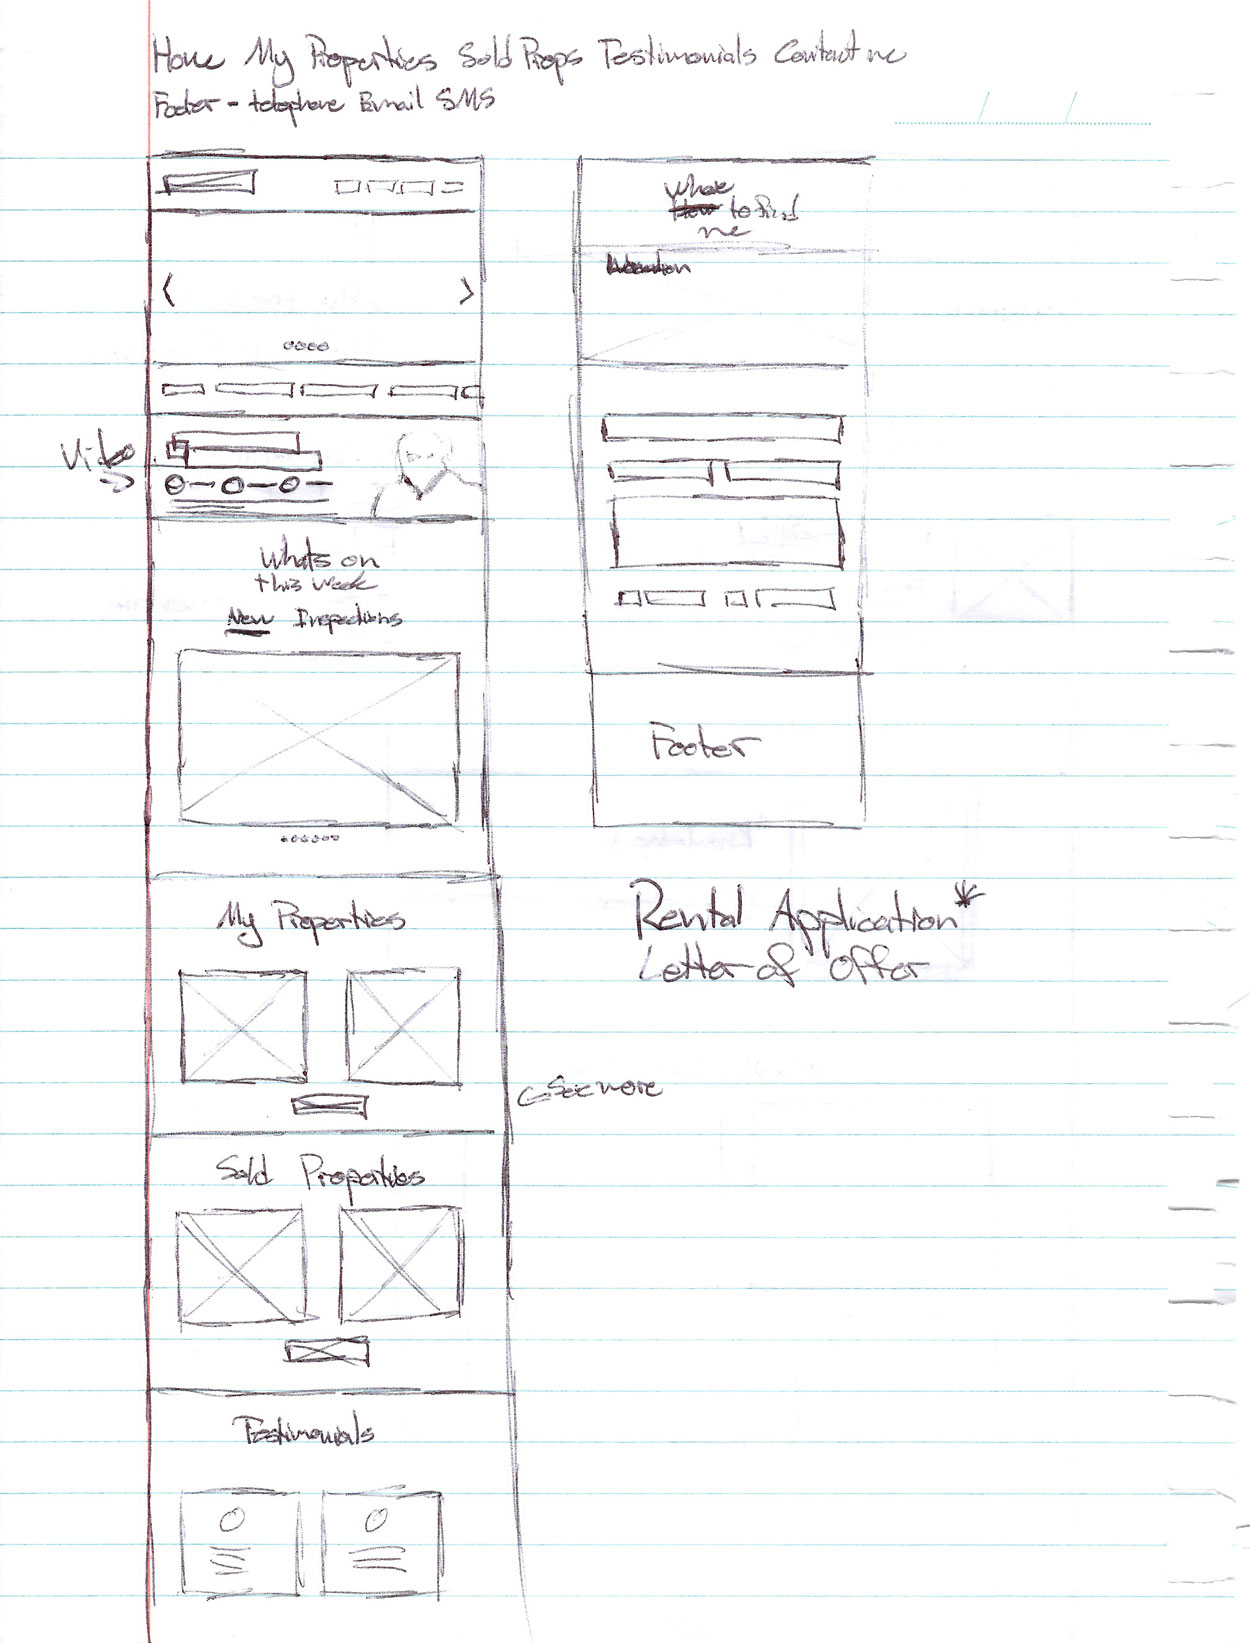 Home My Properties Sold Props Testimonials Contact me
Footer - telephone Email SMS
Video
Whats on
this week
New Inspections
My Properties
See more
Sold Properties
Testimonials
Where
to find
me
Footer
Rental Application*
Letter of Offer